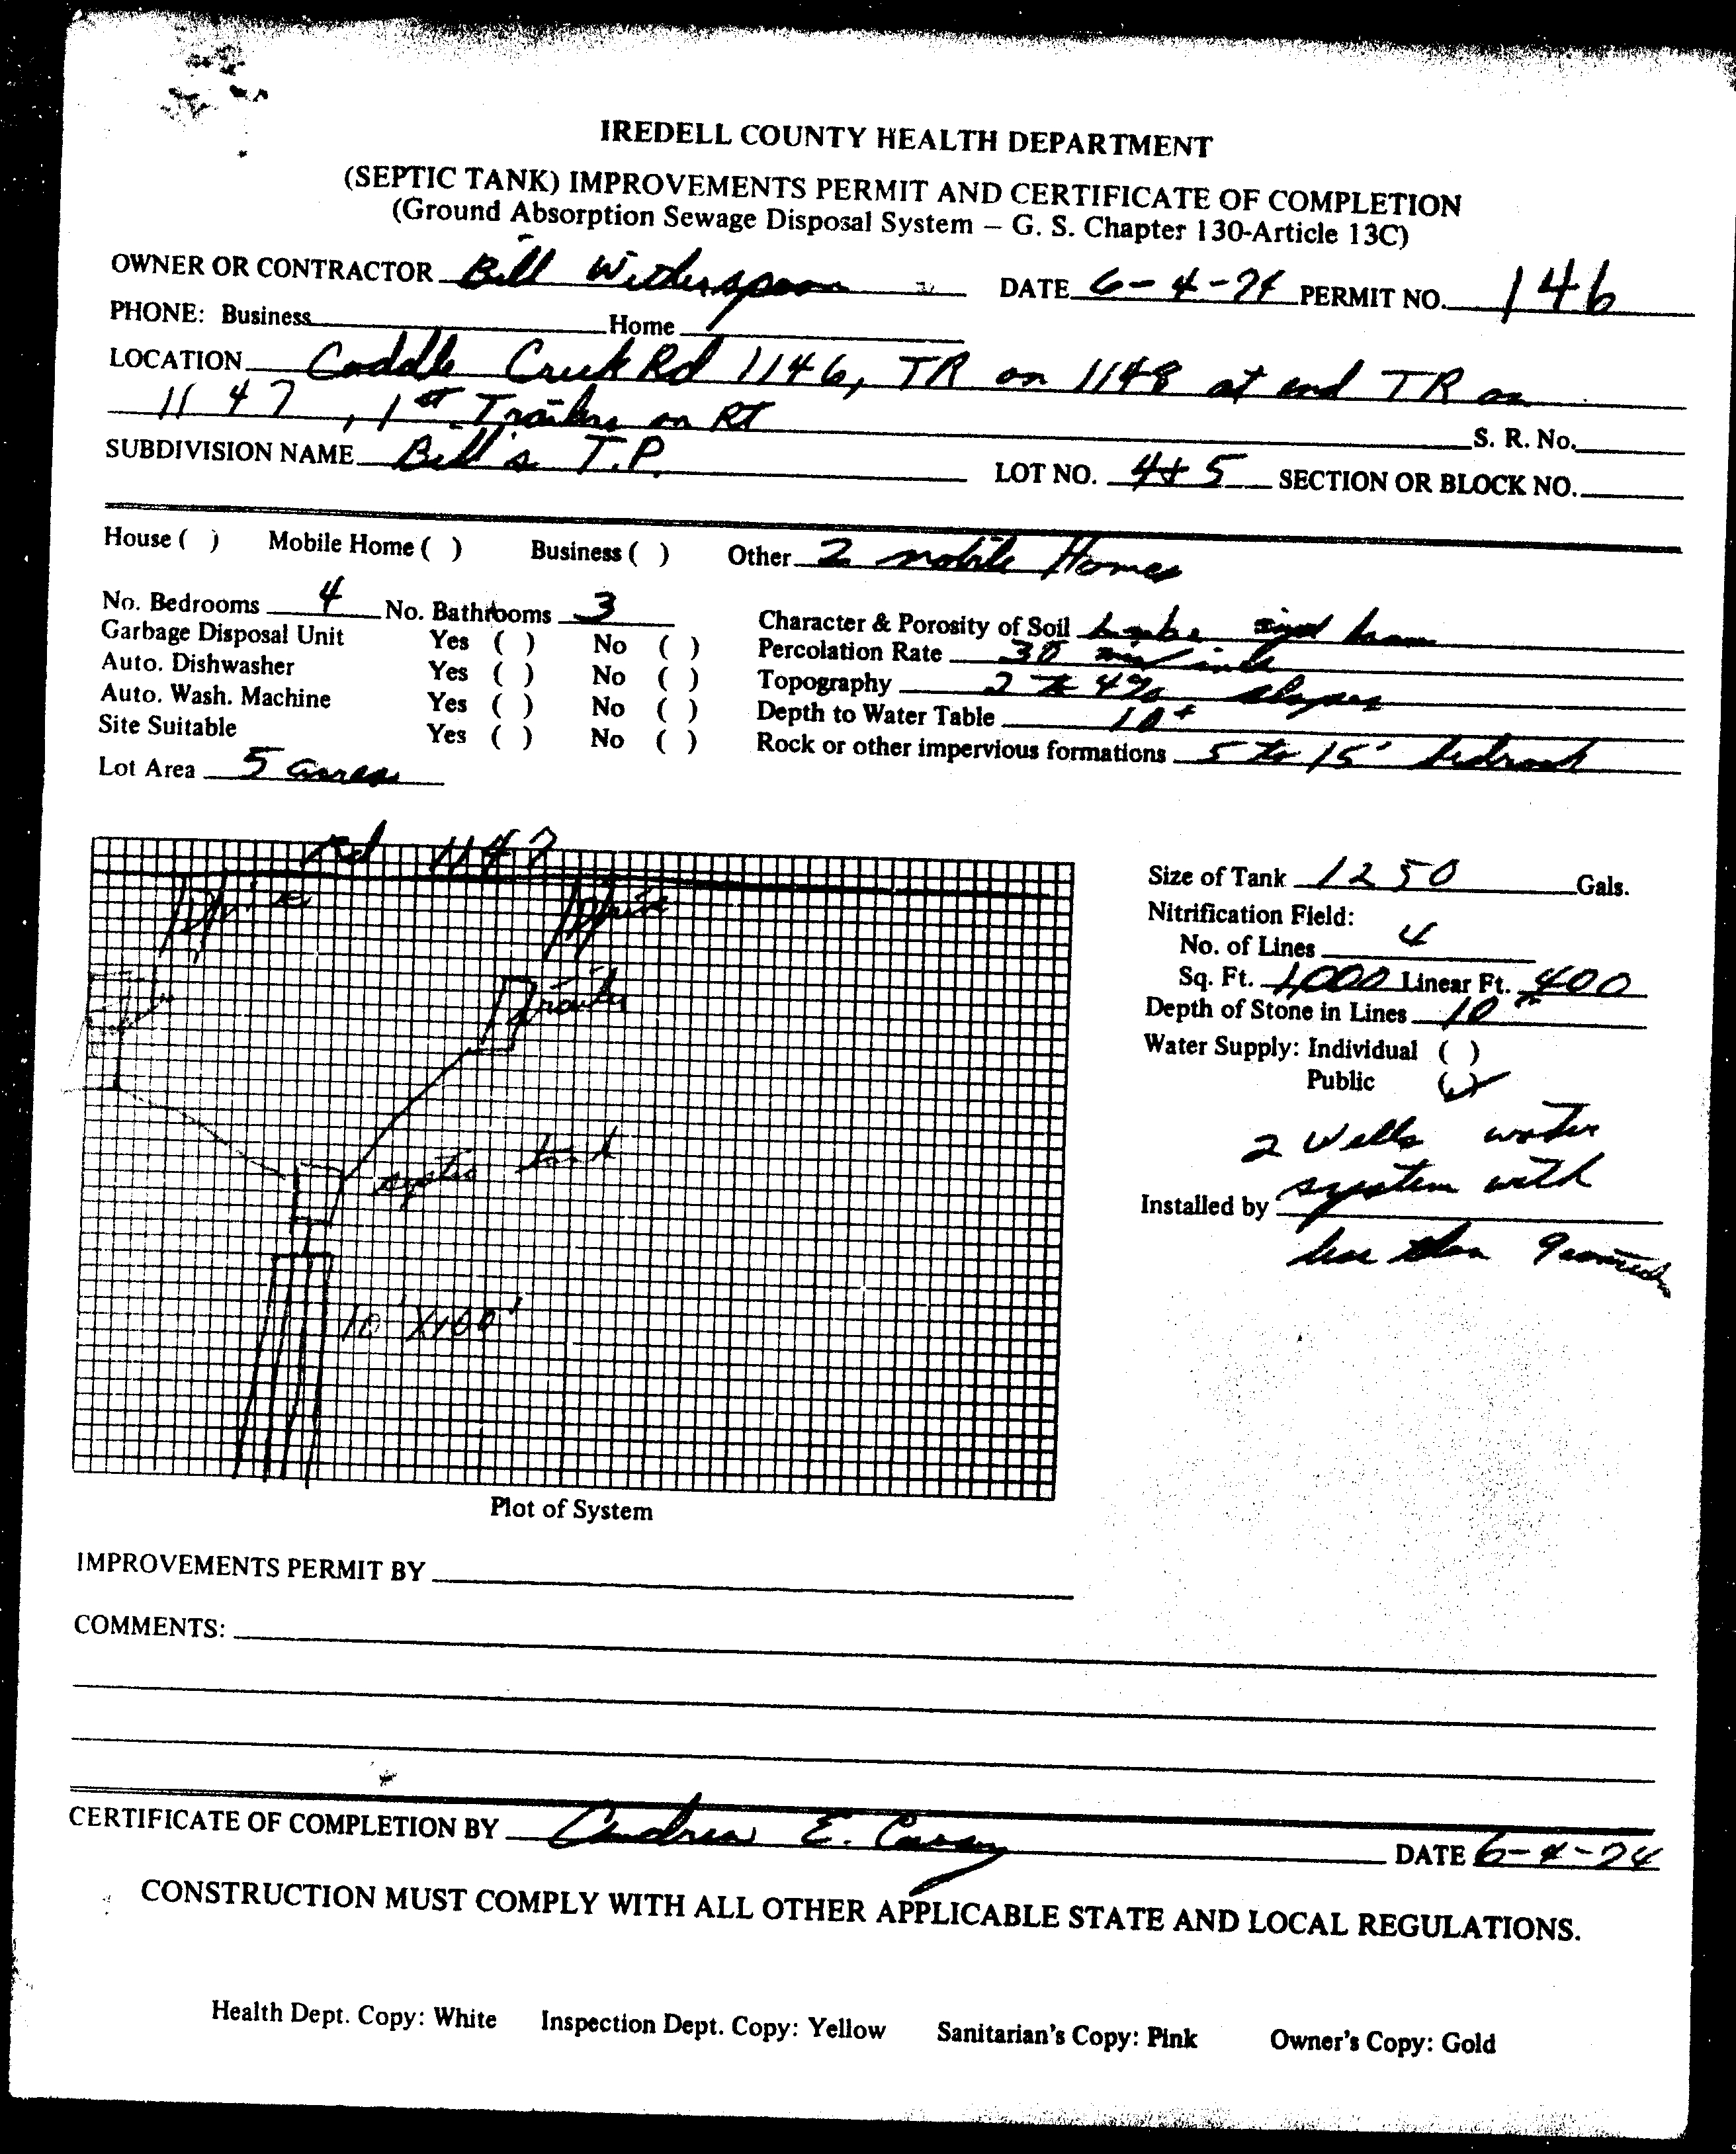 IREDELL COUNTY HEALTH DEPARTMENT
(SEPTIC TANK) IMPROVEMENTS PERMIT AND CERTIFICATE OF COMPLETION
(Ground Absorption Sewage Disposal System – G. S. Chapter 130-Article 13C)
OWNER OR CONTRACTOR Bill Witherspoon DATE 6-4-74 PERMIT NO. 146
PHONE: Business Home
LOCATION Coddle Creek Rd 1146, TR on 1148 at end TR on
1147, 1st Trailers on RT S. R. No.
SUBDIVISION NAME Bill's T.P. LOT NO. 4+5 SECTION OR BLOCK NO.
House ( ) Mobile Home ( ) Business ( ) Other 2 mobile Homes
No. Bedrooms 4 No. Bathrooms 3 Character & Porosity of Soil loam
Garbage Disposal Unit Yes ( ) No ( ) Percolation Rate 30 min/inch
Auto. Dishwasher Yes ( ) No ( ) Topography 2 to 4% slopes
Auto. Wash. Machine Yes ( ) No ( ) Depth to Water Table 10+
Site Suitable Yes ( ) No ( ) Rock or other impervious formations 5 to 15' bedrock
Lot Area 5 acres
Rd 1147
Drive Drive
Trailer
septic tank
10' X 100'
Plot of System
Size of Tank 1250 Gals.
Nitrification Field:
No. of Lines 4
Sq. Ft. 1,000 Linear Ft. 400
Depth of Stone in Lines 10"
Water Supply: Individual ( )
Public (✓)
2 Wells water
Installed by system with
less than 9 connections
IMPROVEMENTS PERMIT BY
COMMENTS:
CERTIFICATE OF COMPLETION BY Andrew E. DATE 6-4-74
CONSTRUCTION MUST COMPLY WITH ALL OTHER APPLICABLE STATE AND LOCAL REGULATIONS.
Health Dept. Copy: White Inspection Dept. Copy: Yellow Sanitarian's Copy: Pink Owner's Copy: Gold